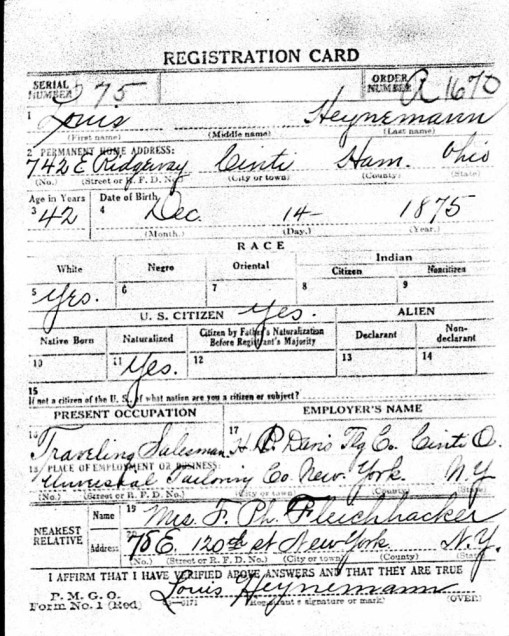 REGISTRATION CARD
SERIAL NUMBER 75 ORDER NUMBER A 1670
1 Louis Heynemann
(First name) (Middle name) (Last name)
2 PERMANENT HOME ADDRESS:
742 E Ridgeway Cinti Ham. Ohio
(No.) (Street or R. F. D. No.) (City or town) (County) (State)
Age in Years Date of Birth
3 42 4 Dec. 14- 1875
(Month.) (Day.) (Year.)
RACE
White Negro Oriental Indian
Citizen Noncitizen
5 Yes. 6 7 8 9
U. S. CITIZEN Yes. ALIEN
Native Born Naturalized Citizen by Father's Naturalization Before Registrant's Majority Declarant Non-declarant
10 11 Yes. 12 13 14
15
If not a citizen of the U. S., of what nation are you a citizen or subject?
PRESENT OCCUPATION EMPLOYER'S NAME
16 Traveling Salesman 17 H. P. Davis Tlg Co. Cinti O.
18 PLACE OF EMPLOYMENT OR BUSINESS:
Universal Tailoring Co New York N Y
(No.) (Street or R. F. D. No.) (City or town) (County) (State)
NEAREST RELATIVE Name 19 Mrs. F. Ph. Fleichhacker
Address 75 E. 120th st New York N.Y.
(No.) (Street or R. F. D. No.) (City or town) (County) (State)
I AFFIRM THAT I HAVE VERIFIED ABOVE ANSWERS AND THAT THEY ARE TRUE
P. M. G. O.
Form No. 1 (Red) Louis Heynemann
(Registrant's signature or mark) (OVER)